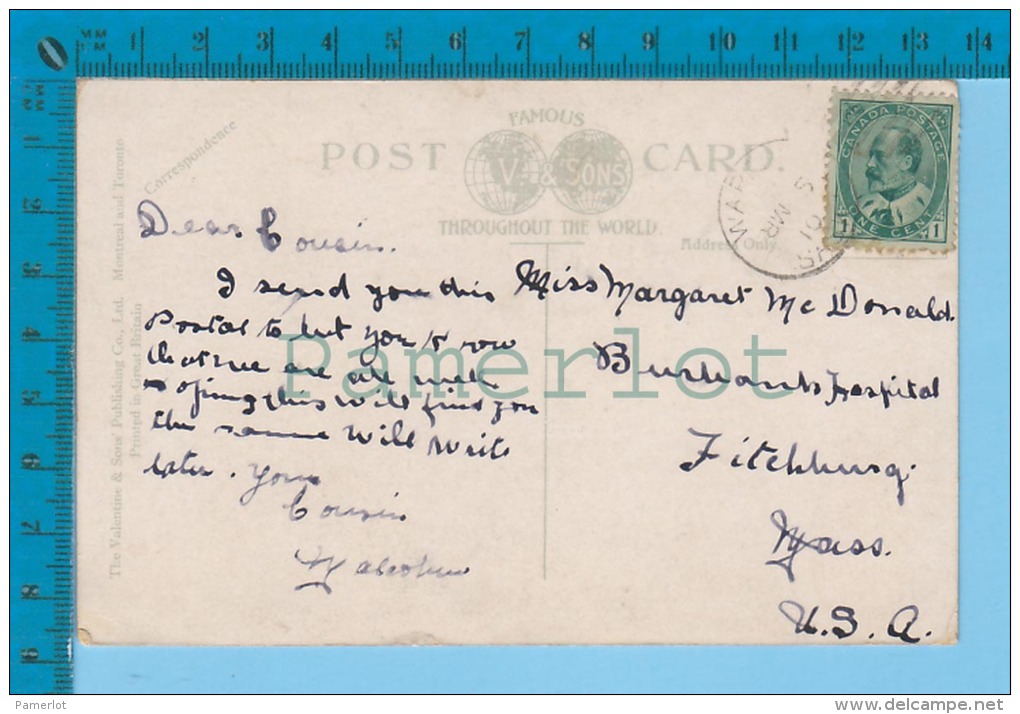 MM
CM 1 2 3 4 5 6 7 8 9 10 11 12 13 14
0
MM
1 2 3 4 5 6 7 8 9
FAMOUS
POST CARD.
V. & SONS
THROUGHOUT THE WORLD.
Correspondence
Address Only.
CANADA POSTAGE
1 ONE CENT 1
MR 5
10
The Valentine & Sons' Publishing Co., Ltd. Montreal and Toronto
Printed in Great Britain
Dear Cousin.
I send you this
Postal to let you know
that we are all well
hoping this will find you
the same will write
later. your
Cousin
Miss Margaret Mc Donald.
Burbanks Hospital
Fitchburg.
Mass.
U.S.A.
Pamerlot
Pamerlot
delcampe.net